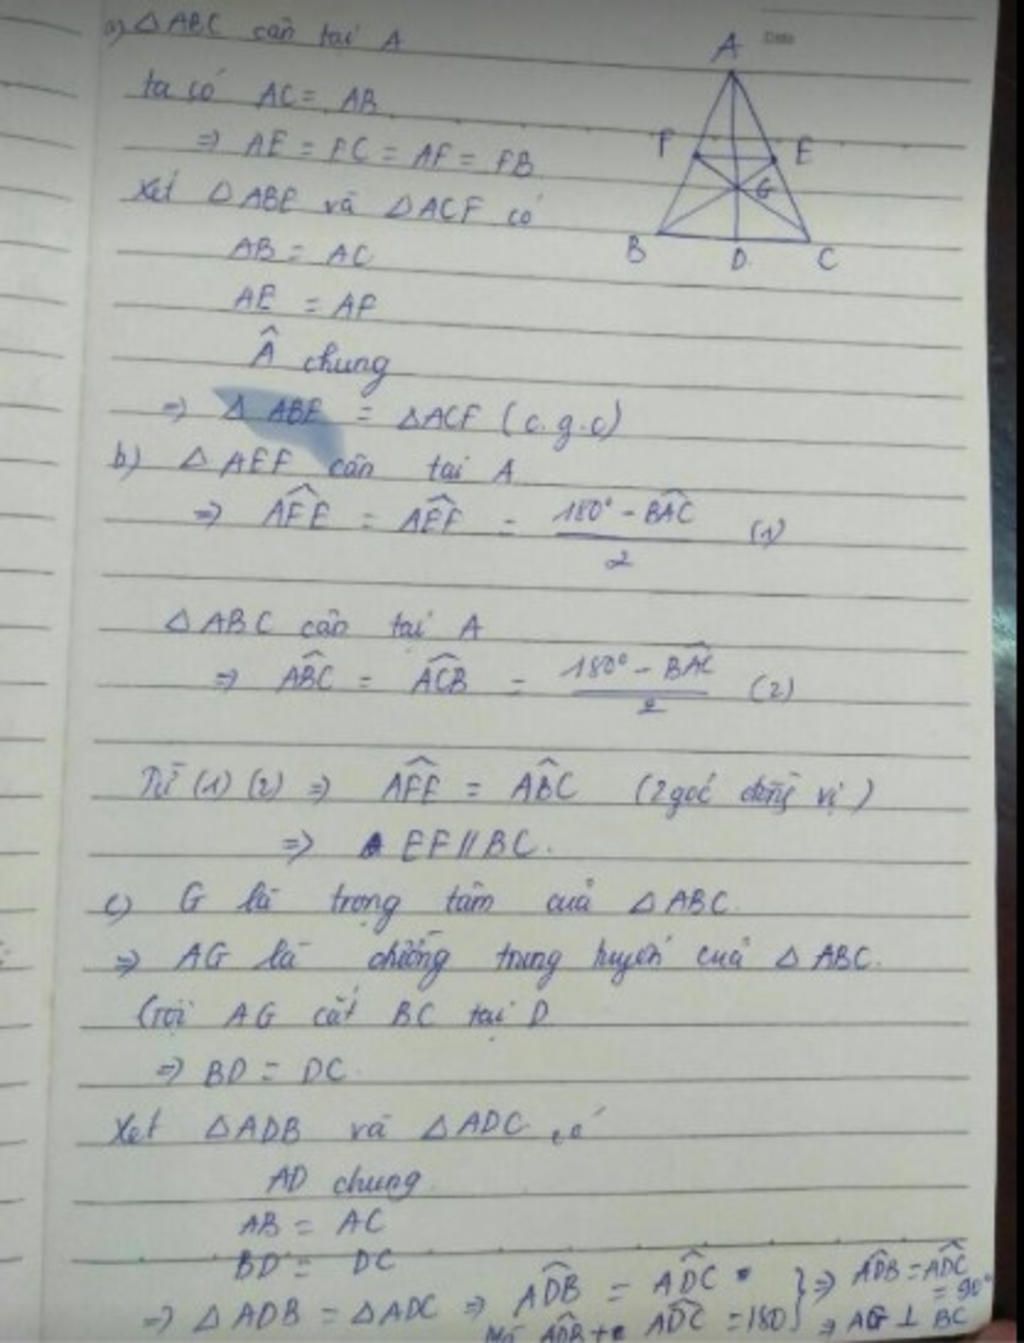 a) △ABC cân tại A
ta có AC = AB
=> AE = EC = AF = FB
Xét △ABE và △ACF có
AB = AC
AE = AF
Â chung
=> △ABE = △ACF (c.g.c)
b) △AEF cân tại A
=> \widehat{AFE} = \widehat{AEF} = \frac{180° - \widehat{BAC}}{2} (1)
△ABC cân tại A
=> \widehat{ABC} = \widehat{ACB} = \frac{180° - \widehat{BAC}}{2} (2)
Từ (1) (2) => \widehat{AFE} = \widehat{ABC} (2 góc đồng vị)
=> EF // BC.
c) G là trọng tâm của △ABC.
=> AG là đường trung tuyến của △ABC.
Gọi AG cắt BC tại D
=> BD = DC.
Xét △ADB và △ADC có
AD chung
AB = AC
BD = DC
=> △ADB = △ADC => \widehat{ADB} = \widehat{ADC} } => \widehat{ADB} = \widehat{ADC} = 90°
Mà \widehat{ADB} + \widehat{ADC} = 180 } => AG ⊥ BC
A
F E
G
B D C